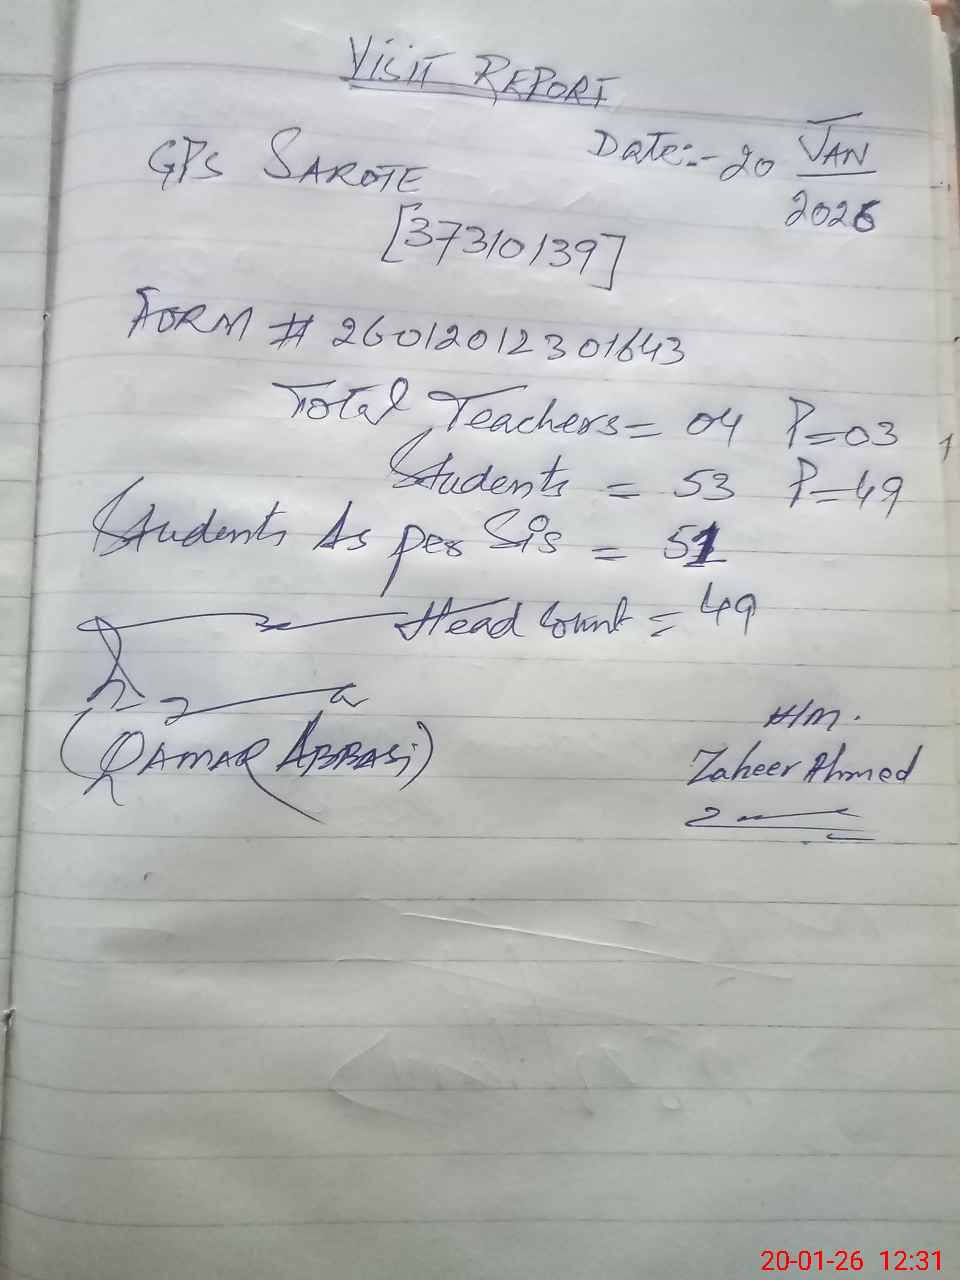 VISIT REPORT
GPS SAROTE Date:- 20 JAN
2026
[37310139]
FORM # 26012012301643
Total Teachers = 04 P=03
Students = 53 P=49
Students As per Sis = 51
Head Count = 49
(QAMAR ABBASi)
H/M.
Zaheer Ahmed
20-01-26 12:31